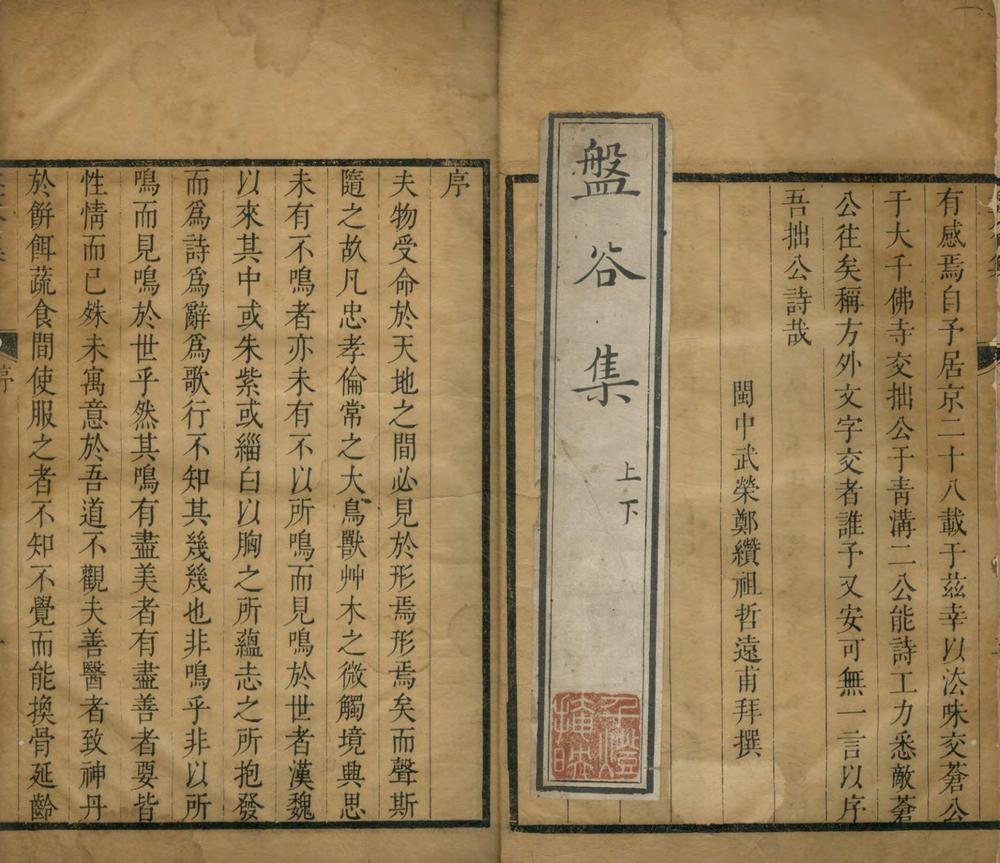 有感焉自予居京二十八載于茲幸以法味交蒼公
于大千佛寺交拙公于青溝二公能詩工力悉敵蒼
公往矣稱方外文字交者誰予又安可無一言以序
吾拙公詩哉
閩中武榮鄭纘祖哲遠甫拜撰
盤谷集
上下
序
夫物受命於天地之間必見於形焉形焉矣而聲斯
隨之故凡忠孝倫常之大鳥獸艸木之微觸境典思
未有不鳴者亦未有不以所鳴而見鳴於世者漢魏
以來其中或朱紫或緇白以胸之所蘊志之所抱發
而爲詩爲辭爲歌行不知其幾幾也非鳴乎非以所
鳴而見鳴於世乎然其鳴有盡美者有盡善者要皆
性情而已殊未寓意於吾道不觀夫善醫者致神丹
於餅餌蔬食間使服之者不知不覺而能換骨延齡
序